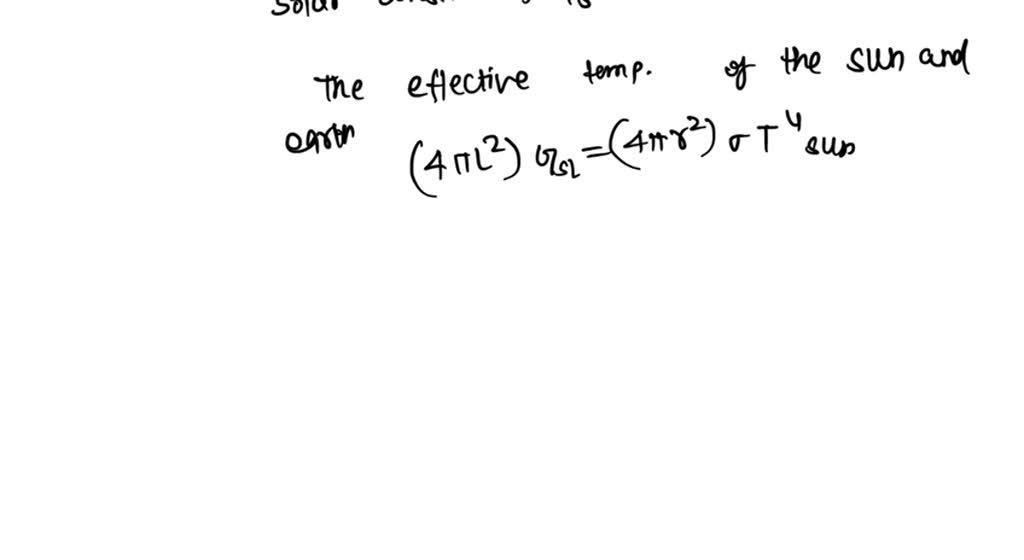 solar
The effective temp. of the sun and
earth (4πL²) = (4πr²) σT⁴ sun